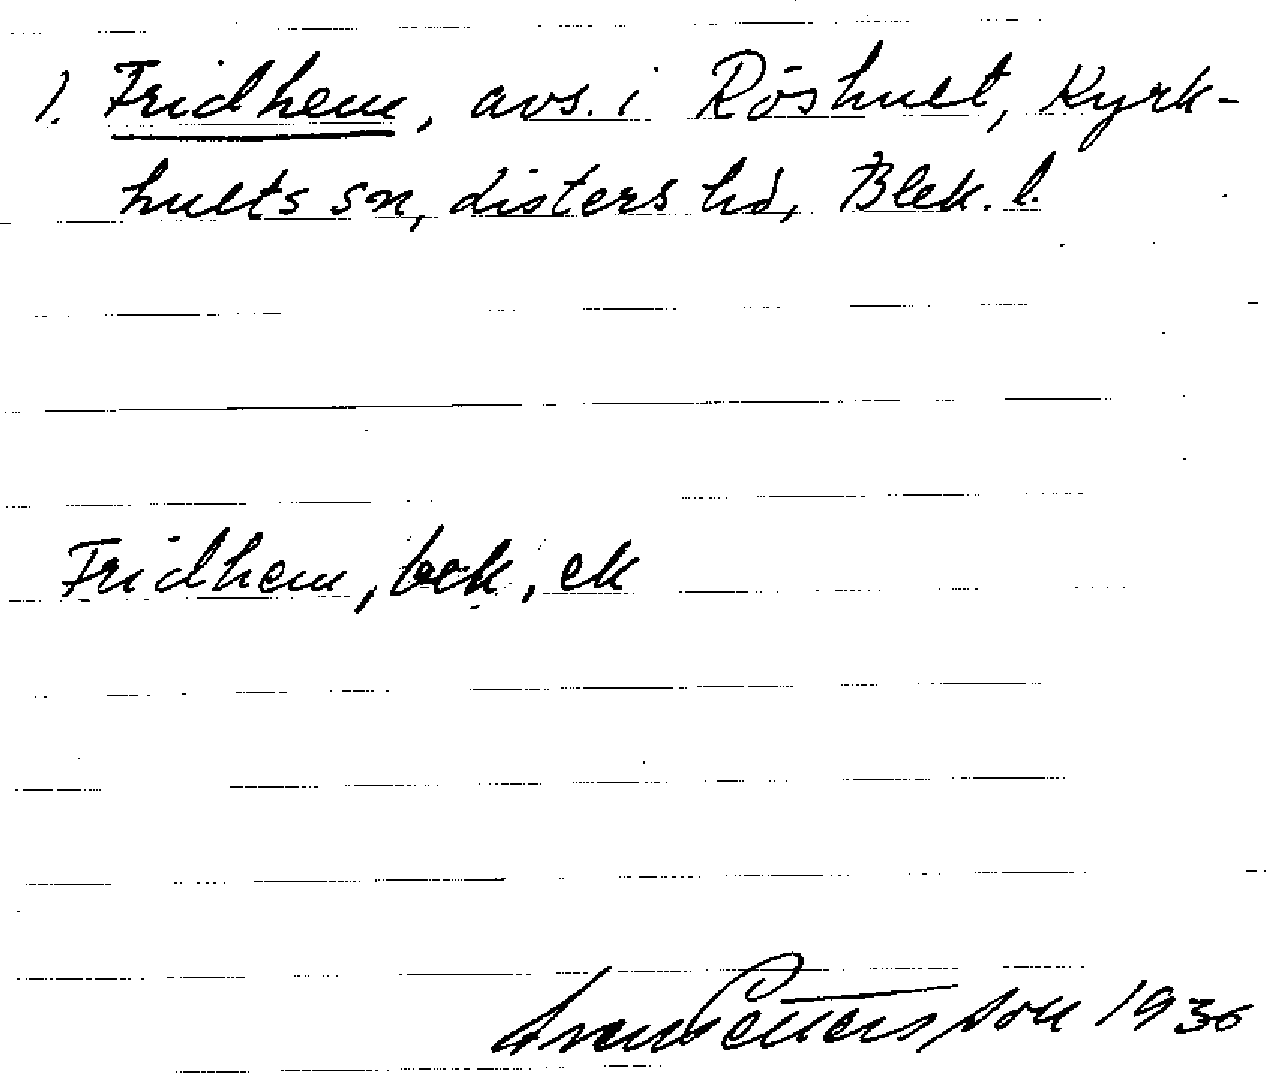 1. Fridhem, avs. i Röshult, Kyrk-
hults sn, Listers hd, Blek. l.
Fridhem, bok, ek
Pettersson 1936